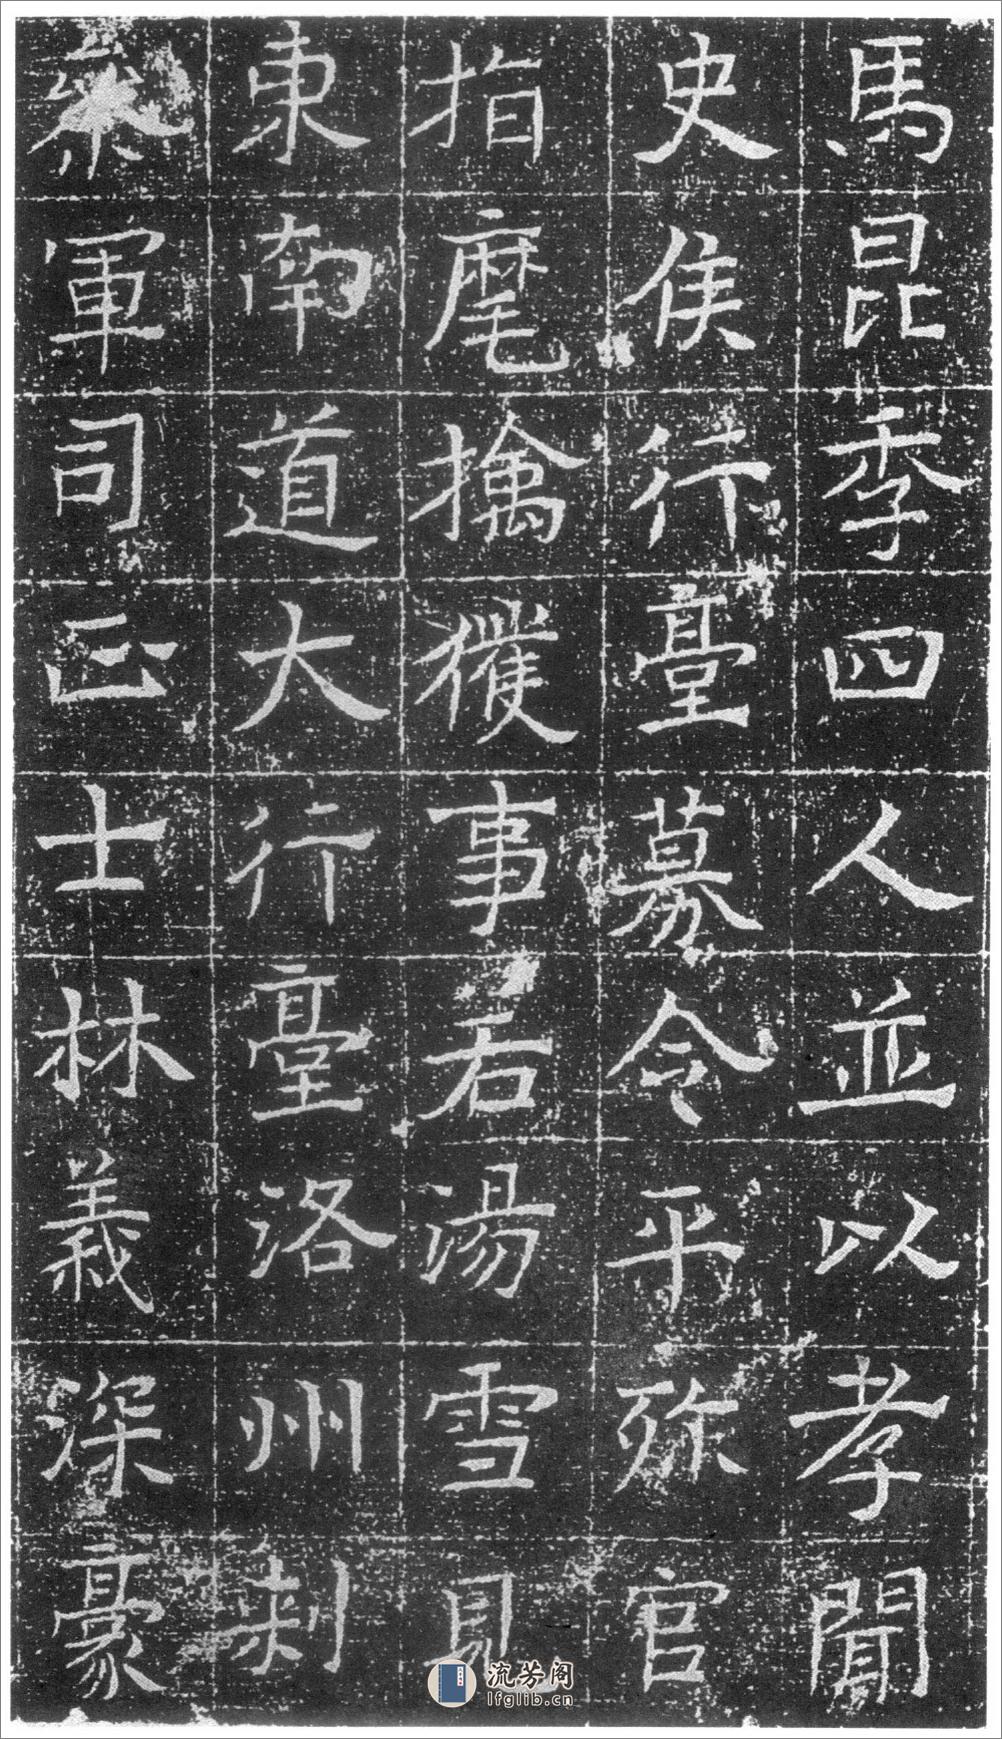 馬昆季四人並以孝聞
史侯行臺募令平殄官
指麾擒獲事若湯雪見
東南道大行臺洛州刺
軍司正士林義深豪
流芳阁
lfglib.cn